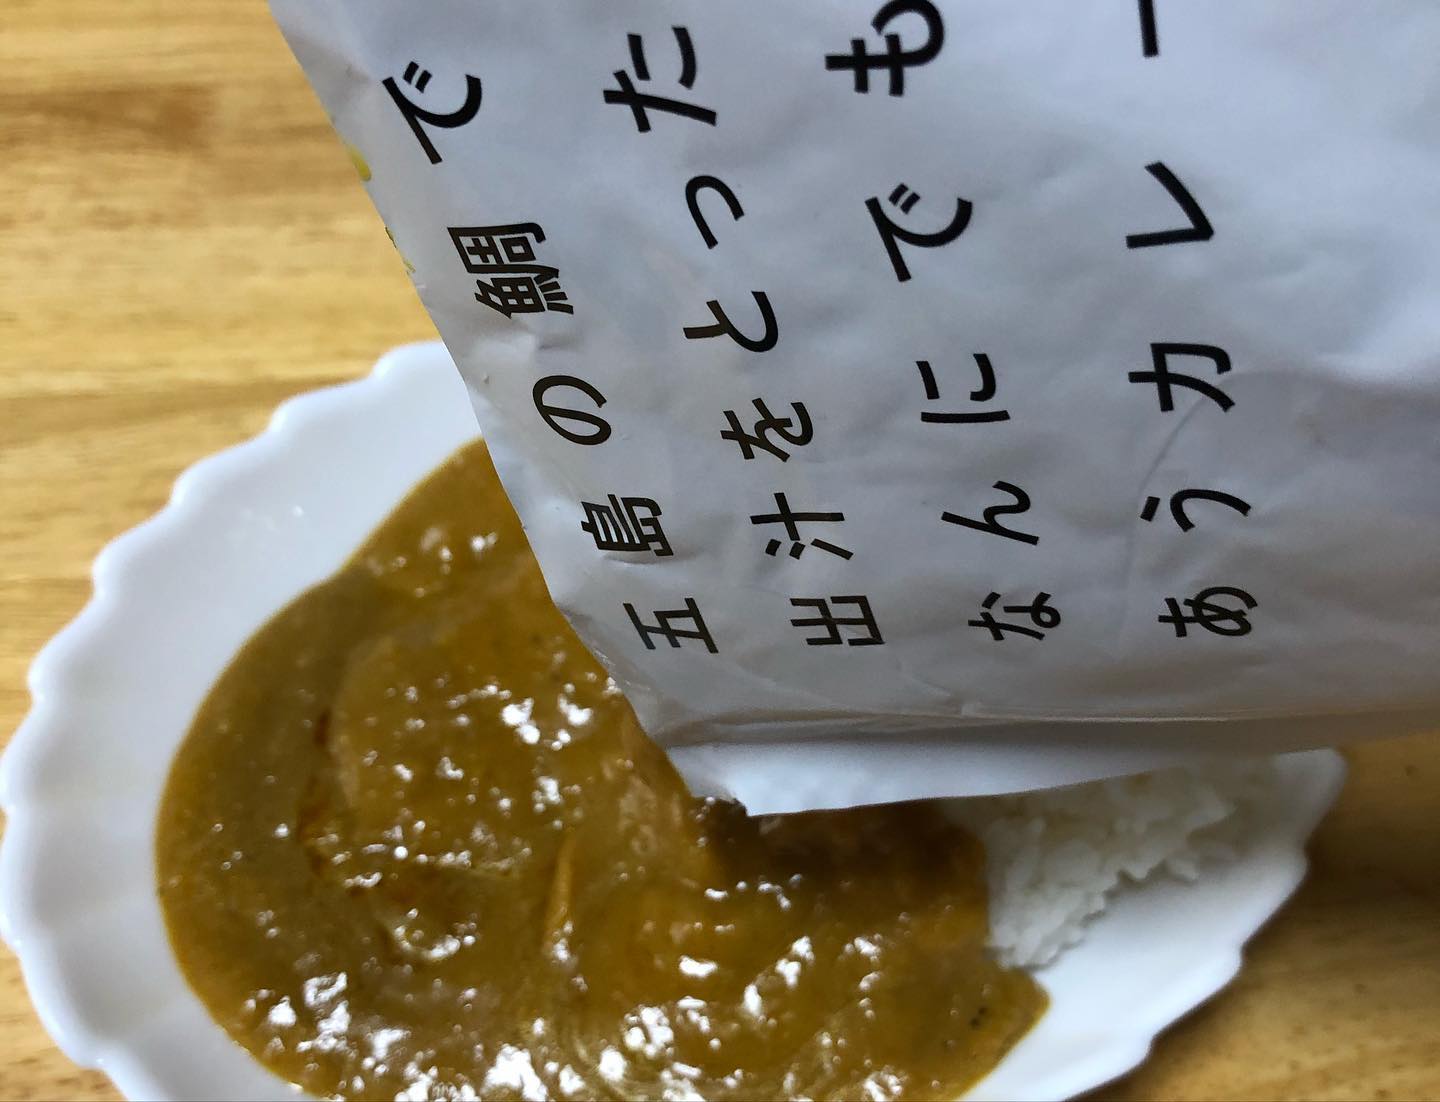 五島の鯛で
出汁をとった
なんにでも
あうカレー